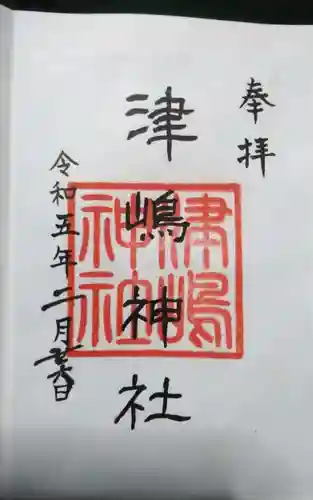 奉拝
津嶋神社
津嶋
神社
令和五年二月廿六日